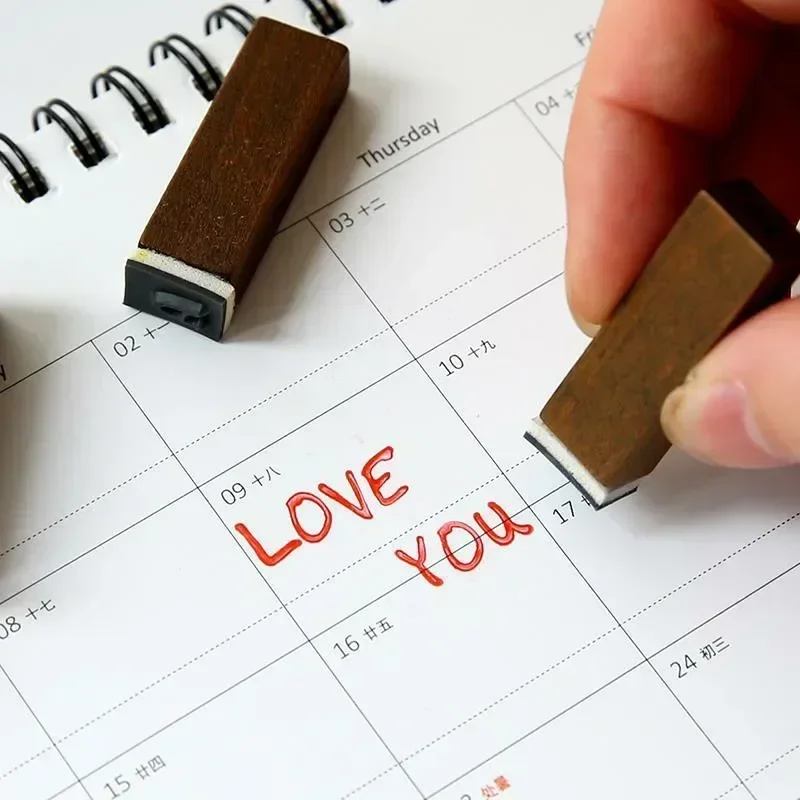 Thursday
04
03 十二
02 十一
10 十九
09 十八
LOVE
YOU
17
08 十七
16 廿五
24 初三
15 廿四
处暑